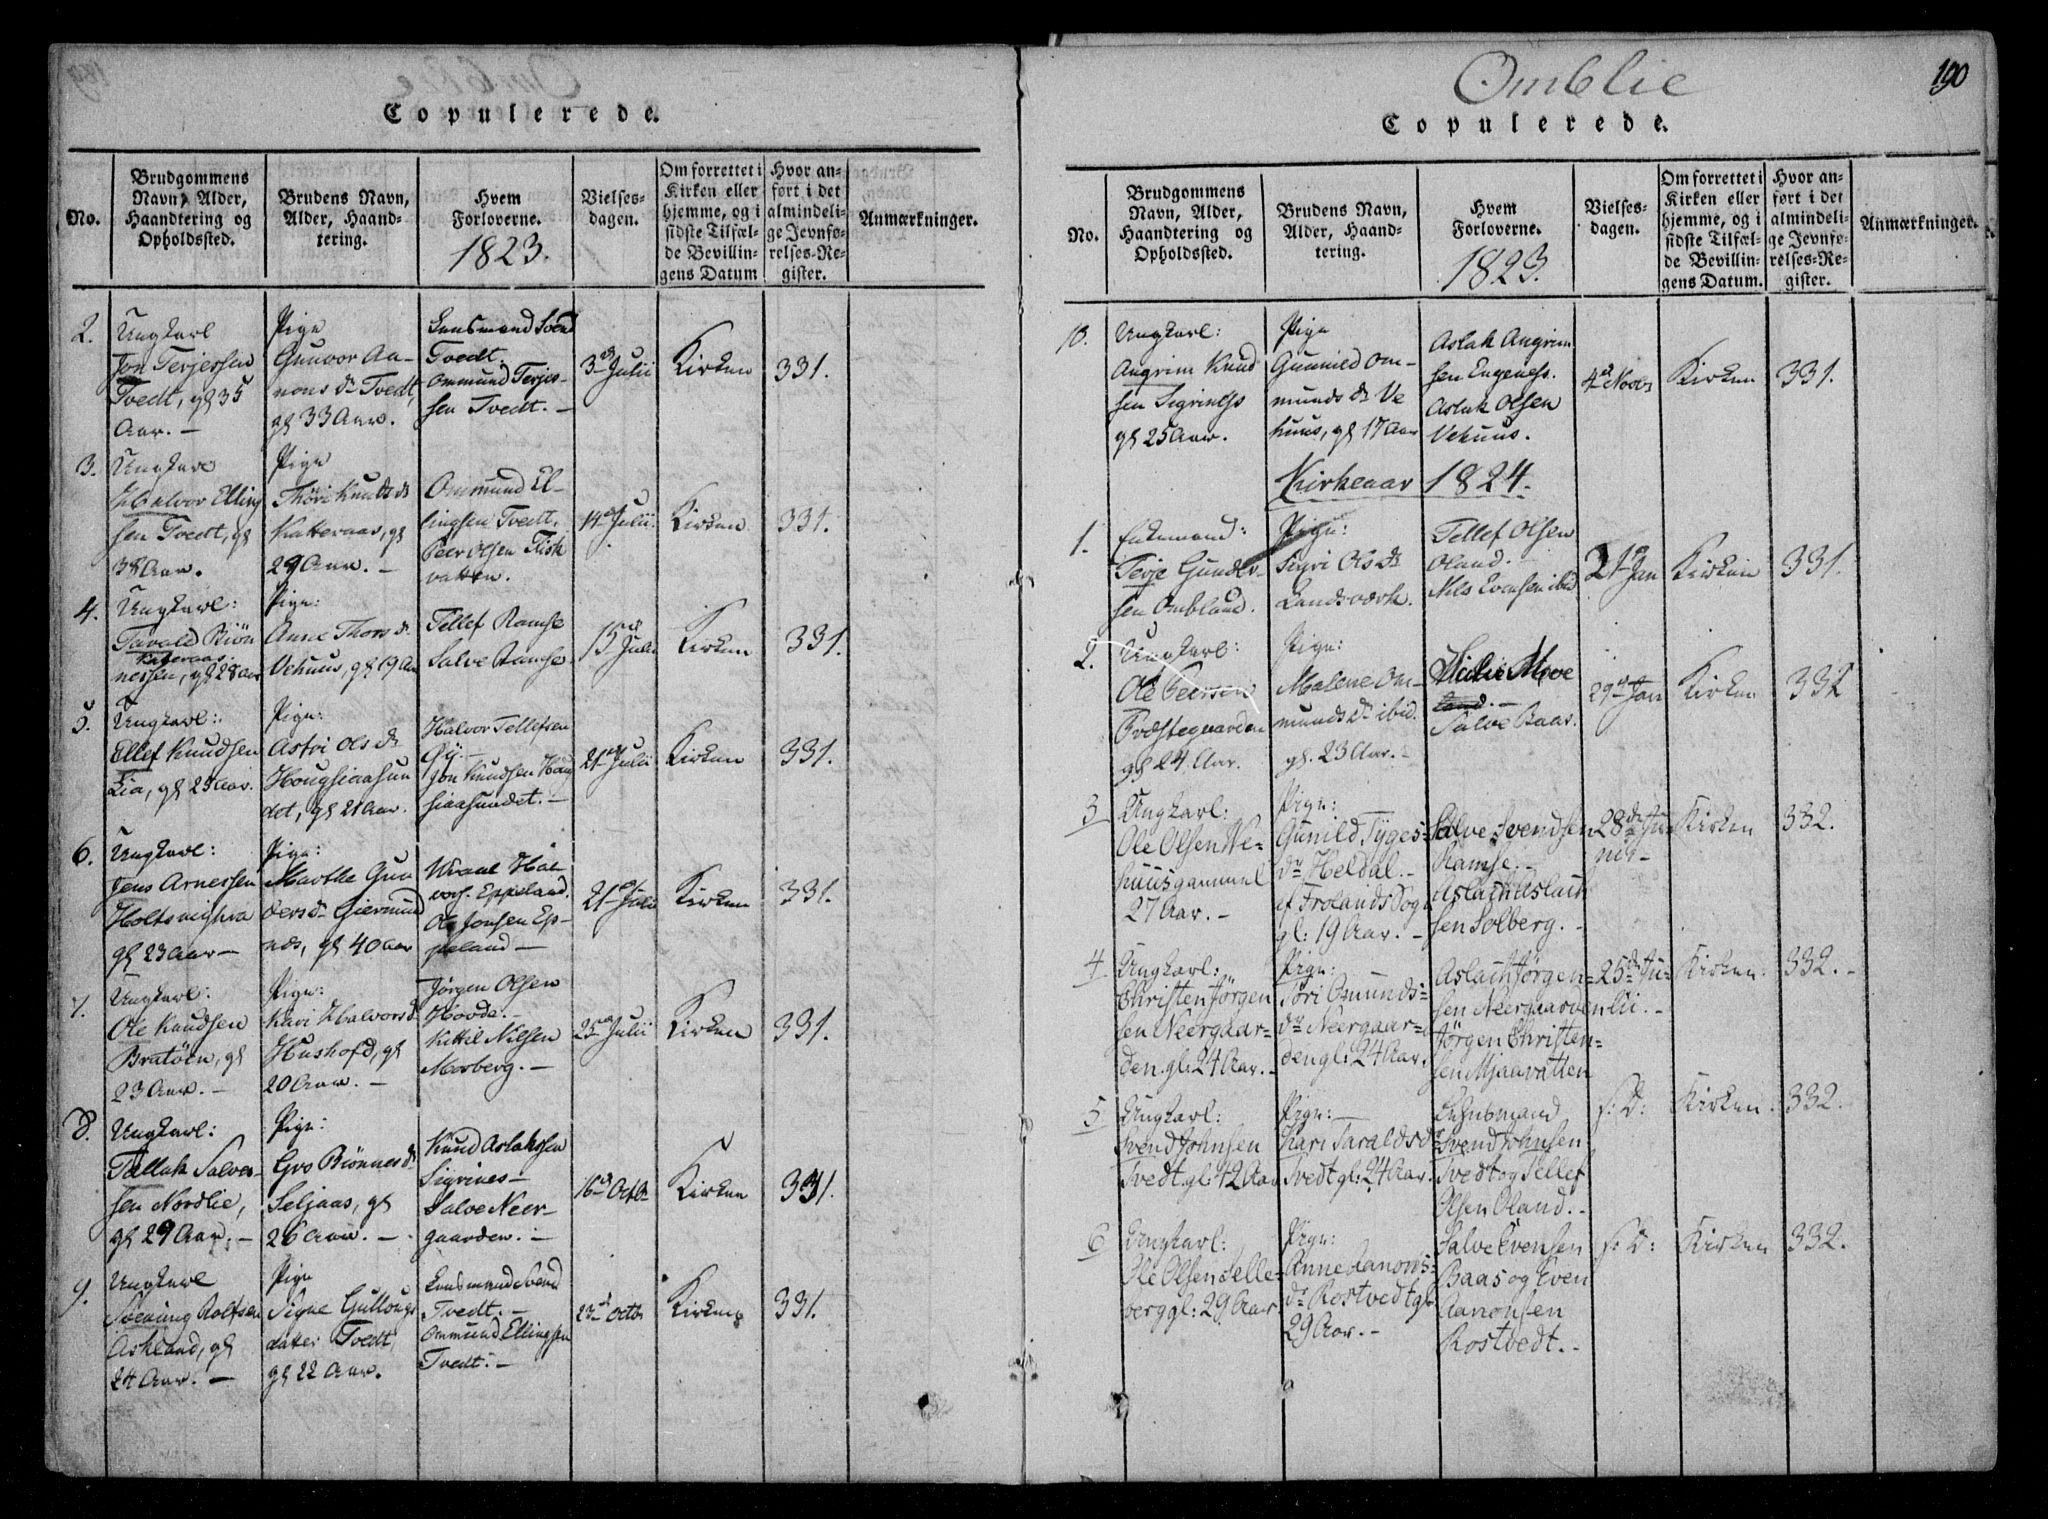 Omblie
Copulerede.
No.
Brudgommens
Navn, Alder,
Haandtering og
Opholdssted.
Brudens Navn,
Alder, Haand-
tering.
Hvem
Forloverne.
1823.
Vielses-
dagen.
Om forrettet i
Kirken eller
hjemme, og i
sidste Tilfæl-
de Bevillin-
gens Datum
Hvor an-
ført i det
almindeli-
ge Jevnfø-
relses-Re-
gister.
Anmærkninger.
2.
Ungkarl
Jon Terjessen
Tvedt, gl 35
Aar. —
Pige
Gunvor Aa-
nons dr Tvedt,
gl 33 Aar.
Lensmand Svend
Tvedt.
Ommund Terjes-
sen Tvedt. —
3die Julii
Kirken
331.
3.
Ungkarl
Halvor Elling
sen Tvedt, gl
38 Aar.
Pige
Thöri Knuds dr
Katteraas, gl
29 Aar. —
Ommund El-
lingsen Tvedt,
Peer Olsen Fisk
vatten.
14de Julii
Kirken
331.
4.
Ungkarl:
Tarald Biön
Katteraas
nessen, gl 28 Aar
Pige:
Anne Thors dr
Vehuus, gl 19 Aar
Tellef Ramse
Salve Ramse
15de Julii
Kirken
331.
5.
Ungkarl:
Ellef Knudsen
Lia, gl 25 Aar.
Pige:
Astri Ols dr
Hougsiaasun
det, gl 21 Aar.
Halvor Tellefsen
Öy. —
Jon Knudsen Houg
siaasundet. —
21de Julii
Kirken
331.
6.
Ungkarl:
Jens Arnessen
gl 23 Aar —
Pige:
Marthe Gun
ders dr Giermund
nes, gl 40 Aar
Hal-
vors. Eppeland.
Ole Jonsen Ep-
peland —
21de Julii
Kirken
331.
7.
Ungkarl:
Ole Knudsen
Bratöen, gl
23 Aar. —
Pige:
Kari Halvors d
Hushofd, gl
20 Aar. —
Jörgen Olsen
Hovde. —
Kittil Nilsen
Morberg. —
25de Julii
Kirken
331.
8.
Ungkarl:
Tallak Salves-
sen Nordlie,
gl 29 Aar. —
Pige:
Gro Biönnes dr
Seljaas, gl
26 Aar. —
Knud Aslaksen
Sigrines —
Salve Neer-
gaarden. —
16de Octbr
Kirken
331.
9.
Ungkarl
Svenung Rolfsen
Askland, gl
24 Aar. —
Pige
Signe Gullougs
datter Tvedt,
gl 22 Aar.
Lensmand Svend
Tvedt. —
Ommund Ellingsen
Tvedt. —
23de Octbr
Kirken
331.
Omblie
190
Copulerede.
No.
Brudgommens
Navn, Alder,
Haandtering og
Opholdssted.
Brudens Navn,
Alder, Haand-
tering.
Hvem
Forloverne.
1823.
Vielses-
dagen.
Om forrettet i
Kirken eller
hjemme, og i
sidste Tilfæl-
de Bevillin-
gens Datum.
Hvor an-
ført i det
almindeli-
ge Jevnfø-
relses-Re-
gister.
Anmærkninger.
10.
Ungkarl:
Angrim Knud
sen Sigrines
gl 25 Aar.
Pige
Gunild Om-
munds dr Ve
huus, gl 17 Aar
Aslak Angrim
sen Engenes.
Aslak Olsen
Vehuus.
4de Novbr
Kirken
331.
Kirkeaar 1824.
1.
Enkemand:
Terje Gunder-
sen Ombland.
Pige:
Sigri Ols dr
Landsverk.
Tellef Olsen
Oland.
Nils Evensen ibid
21de Jan
Kirken
331.
2.
Ungkarl:
Ole Peersen
Præstegaarden
gl 24 Aar.
Pige:
Malene Om-
munds dr ibid.
gl. 23 Aar.
Salve Baas.
29de Jan
Kirken
332
3
Ungkarl:
Ole Olsen We-
huus gammel
27 Aar. —
Pige:
Gunild Tyges-
dr Heldal. —
af Frolands Sogn
gl: 19 Aar. —
Salve Svendsen
Ramse. —
Aslach Aslach
sen Solberg. —
28de Ju-
nii —
Kirken
332.
4
Ungkarl:
Christen Jörgen
sen Neergaar-
den. gl: 24 Aar. —
Pige: —
Töri Omunds-
dr Neergaar-
den gl: 24 Aar.
Aslach Jörgen-
sen Neergaarden
Jörgen Christen-
sen Mjaavatten
25de Ju-
lii. —
Kirken.
332. —
5
Ungkarl:
Svend Johnsen
Tvedt. gl: 42 Aar
Pige: —
Kari Taralds dr
Tvedt gl: 24 Aar.
Lehnsmand
Svend Johnsen
Tvedt og Tellef
Olsen Oland. —
s: D:
Kirken.
332.
6
Ungkarl:
Ole Olsen Selle-
berg gl: 29 Aar
Pige:
Anne Aanons-
dr Rostvedt gl:
29 Aar. —
Salve Evensen
Baas og Even
Aanonsen
Rostvedt. —
s: D:
Kirken
332.